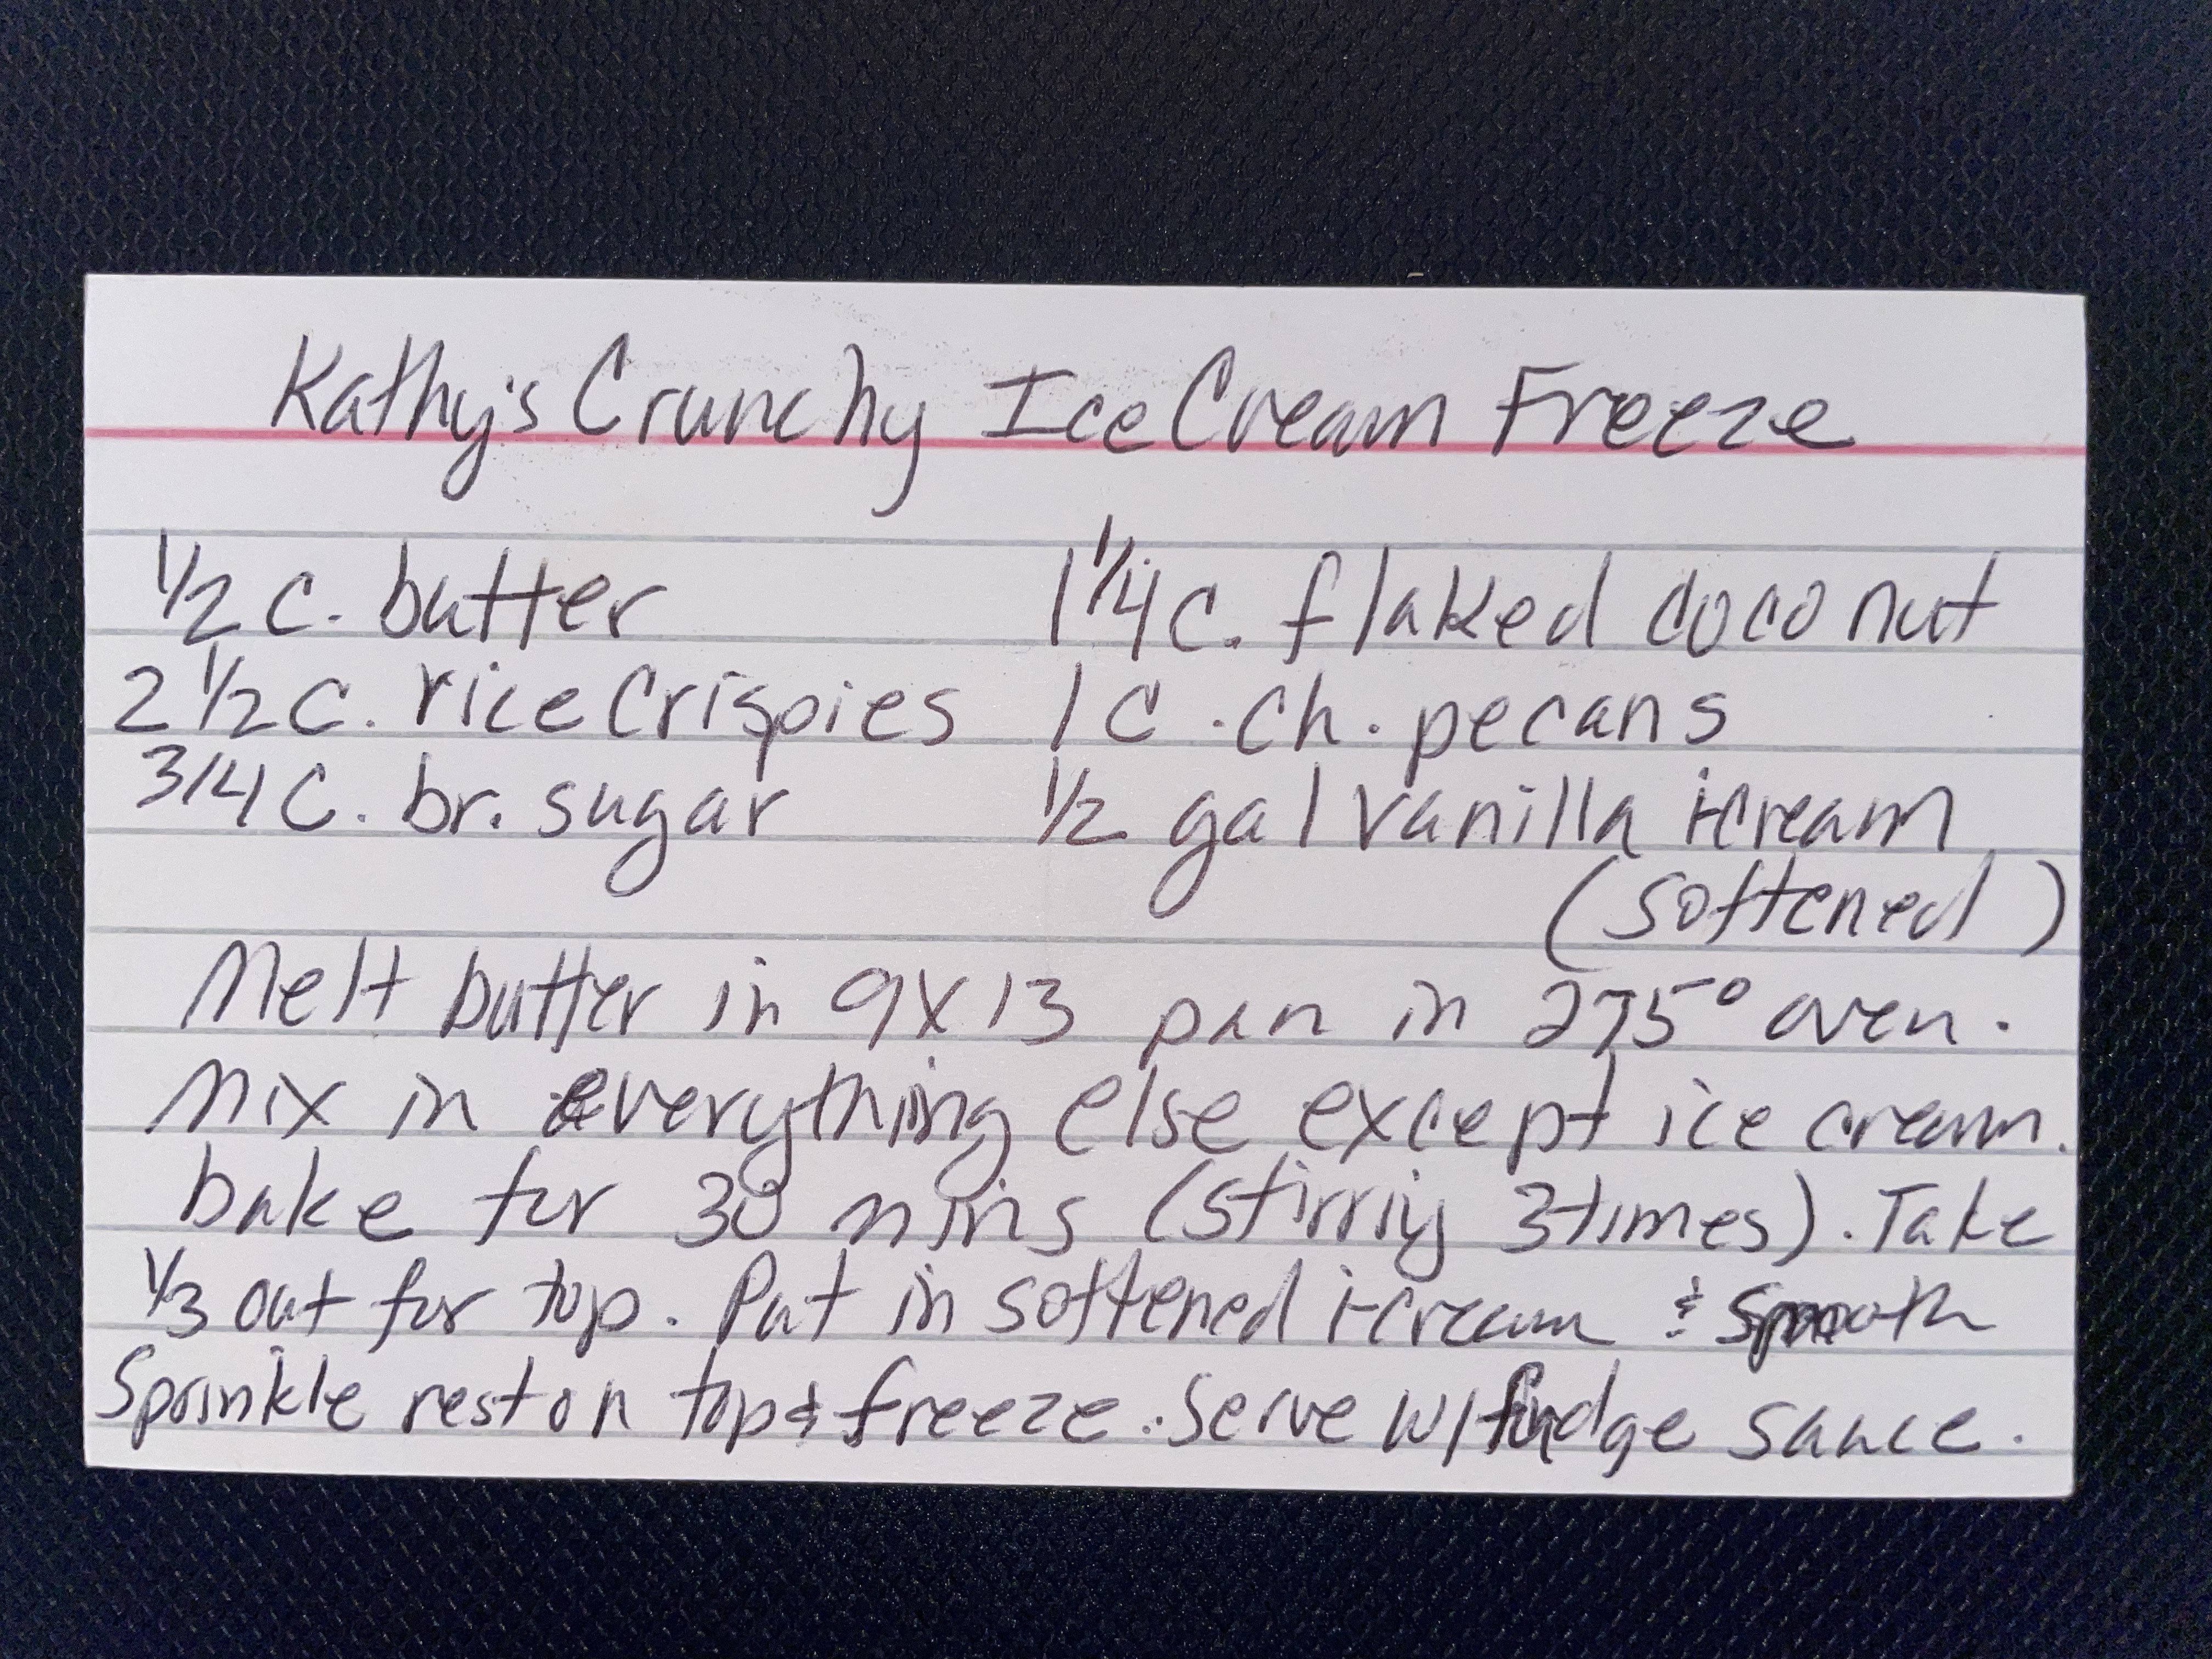 Kathy's Crunchy Ice Cream Freeze
1/2 c. butter 1 1/4 c. flaked coconut
2 1/2 c. rice Crispies 1 c. ch. pecans
3/4 c. br. sugar 1/2 gal vanilla i-cream
(softened)
Melt butter in 9x13 pan in 275° oven.
Mix in everything else except ice cream.
bake for 30 mins (stirring 3 times). Take
1/3 out for top. Put in softened i-cream & smooth
Sprinkle rest on top & freeze. Serve w/ fudge sauce.